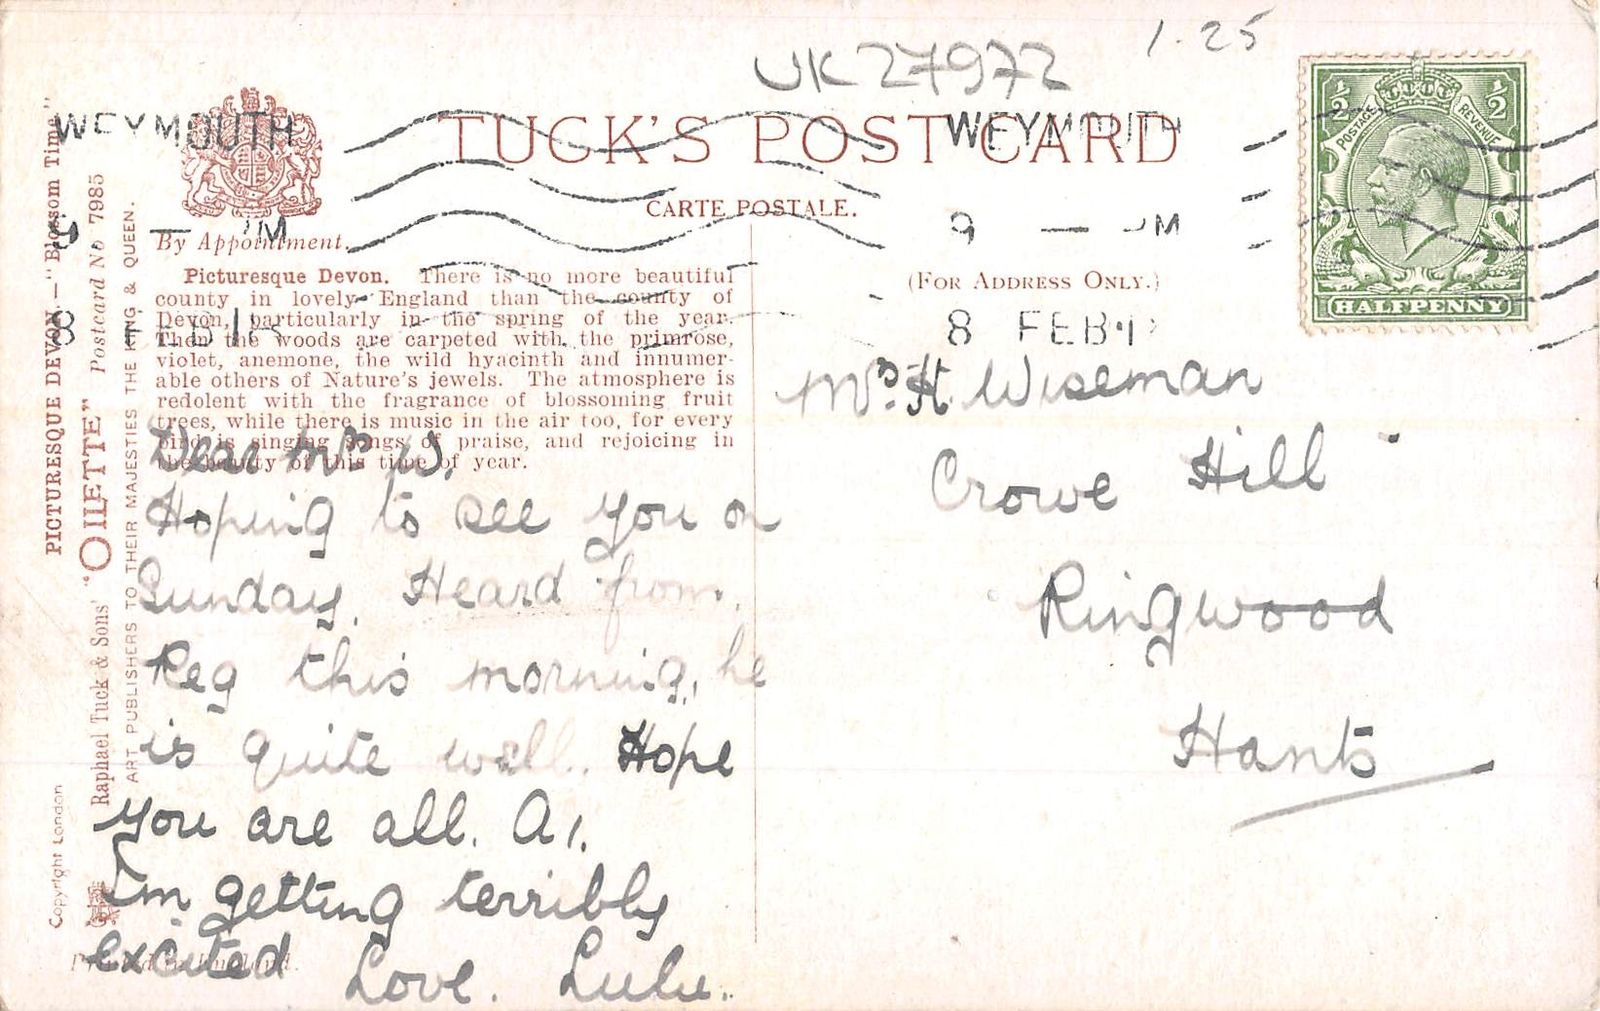 UK 27972
1.25
TUCK'S POST CARD
CARTE POSTALE.
WEYMOUTH
PM
8 FEB 1
WEYMOUTH
9 — PM
8 FEB 1
½ ½
POSTAGE REVENUE
HALFPENNY
By Appointment.
Picturesque Devon. There is no more beautiful
county in lovely England than the county of
Devon, particularly in the spring of the year.
Then the woods are carpeted with the primrose,
violet, anemone, the wild hyacinth and innumer-
able others of Nature's jewels. The atmosphere is
redolent with the fragrance of blossoming fruit
trees, while there is music in the air too, for every
bird is singing songs of praise, and rejoicing in
the beauty of this time of year.
Dear Mrs W.
Hoping to see you on
Sunday. Heard from
Reg this morning, he
is quite well. Hope
you are all. A1.
I'm getting terribly
excited Love. Lulu.
(For Address Only.)
Mrs. H. Wiseman
Crowe Hill
Ringwood
Hants
PICTURESQUE DEVON.—"Blossom Time"
Raphael Tuck & Sons' "OILETTE" Postcard No 7985
ART PUBLISHERS TO THEIR MAJESTIES THE KING & QUEEN.
Copyright London
Printed in England.